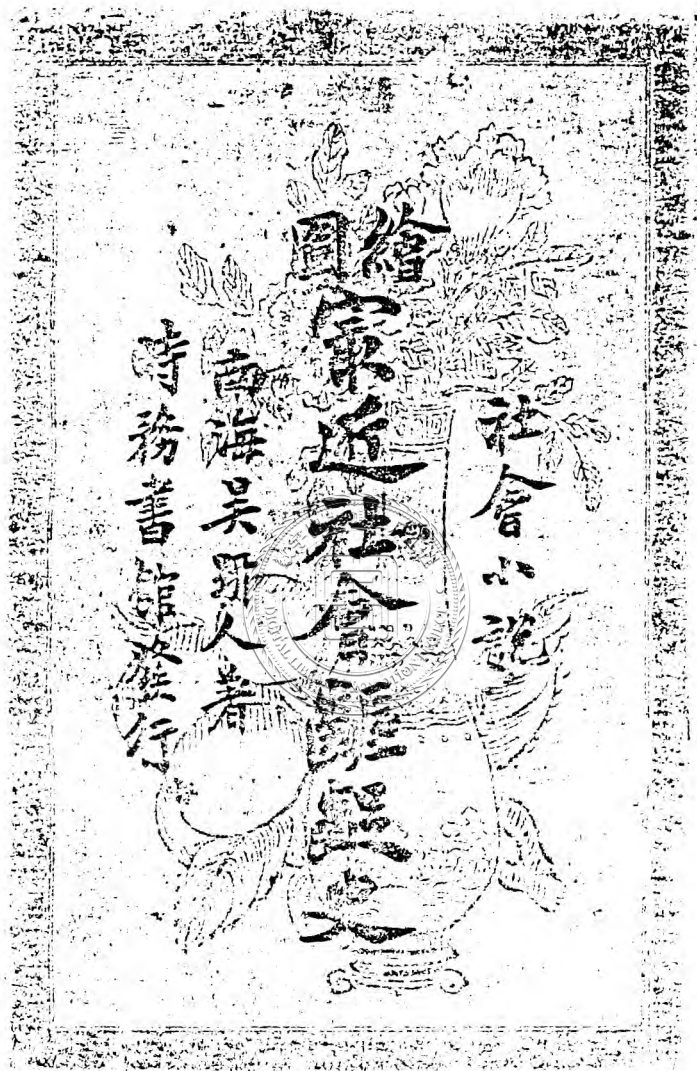 社會小說
繪圖
最近社會齷齪史
南海吳趼人著
時務書館發行